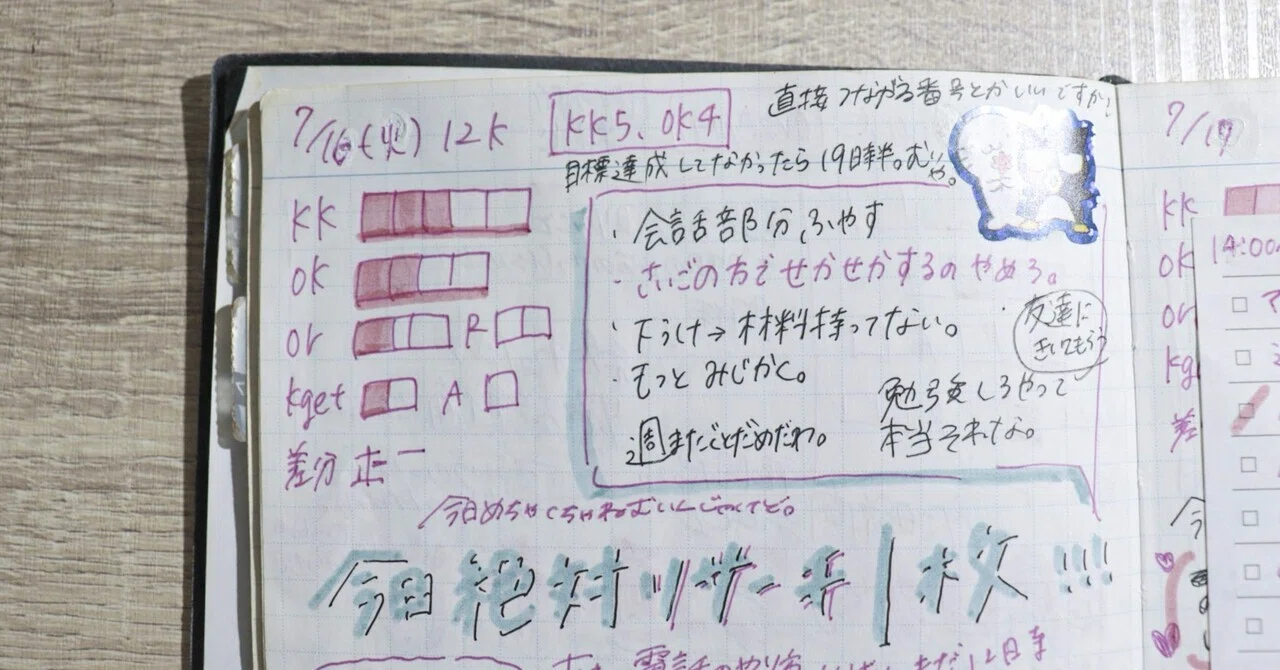 7/16(火) 12K
KK5、OK4
直接つながる番号とかいいですか?
目標達成してなかったら19時半。むりや。
KK
OK
or R
kget A
差分 正一
・会話部分ふやす
・さいごの方でせかせかするのやめろ。
・下うけ→材料持ってない。
・友達にきいてもらう
・もっとみじかく。
勉強しろやって
本当それな。
2週またごとだめだわ。
今日めちゃくちゃねむいんじゃけど。
今日絶対リサーチ1枚!!!
7/17
KK
OK
or
kg
差
14:00
今